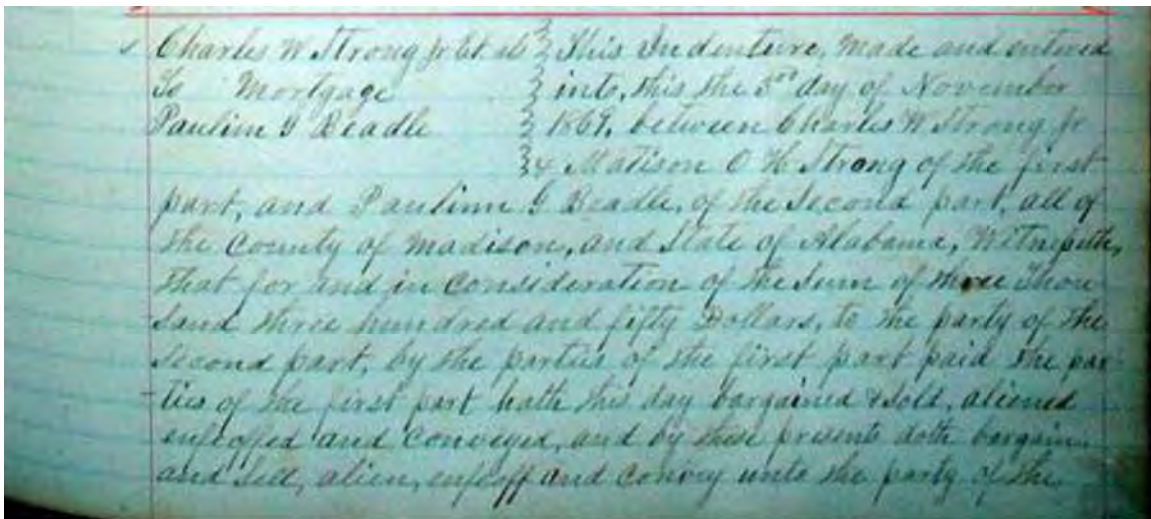 Charles W Strong Jr Et al } This Indenture, made and entered
To Mortgage } into, this the 3rd day of November
Paulinn G Beadle } 1869, between Charles W Strong Jr
} & Matison O H Strong of the first
part, and Paulinn G Beadle, of the Second part, all of
the County of Madison, and State of Alabama, Witnesseth,
that for and in Consideration of the Sum of three Thou
Sand three hundred and fifty Dollars, to the party of the
Second part, by the parties of the first part paid the par
ties of the first part hath this day bargained & Sold, aliened
enfeoffed and Conveyed, and by these presents doth bargain
and Sell, alien, enfeoff and Convey unto the party of the